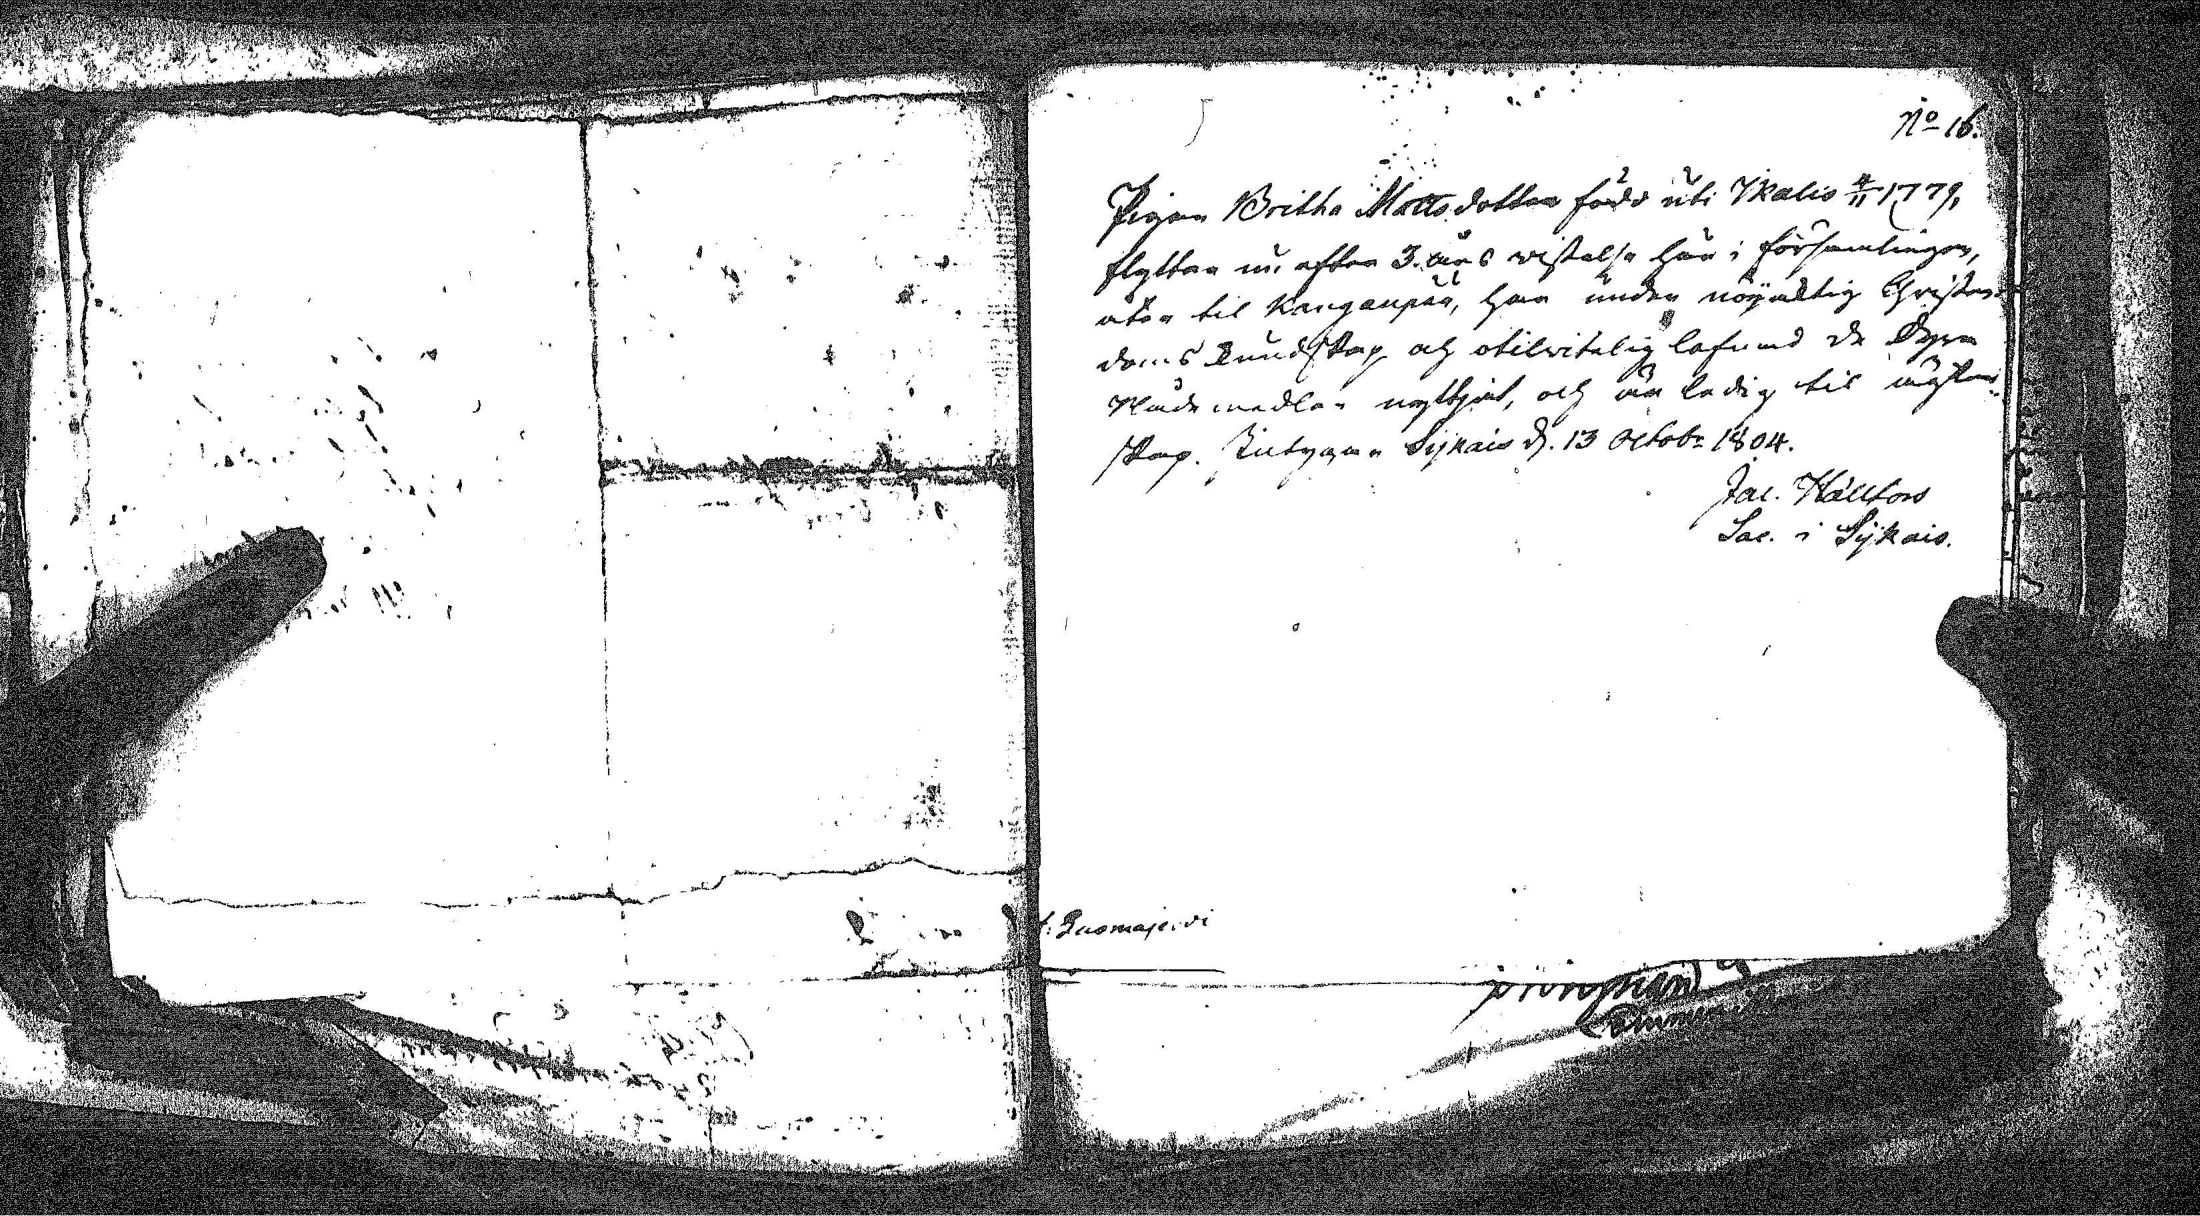 No 16.
Pigan Britha Mattsdotter född uti Ikalis 4/11 1779,
flyttar nu efter 3. års wistelse här i församlingen,
åter til Kanganpää, har under nöjaktig Christen-
doms Kundskap och otilvitelig lefnad de Dyra
Nådemedlen nyttjat, och är ledig til ägten-
skap. Intygar Sijkais d. 13 Octobr 1804.
Jac. Källfors
Sac. i Sijkais.